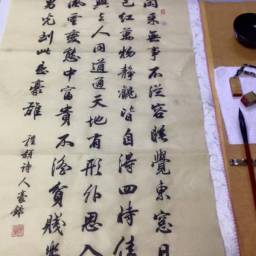 閑来無事不從容睡覺東窗日
已红萬物靜觀皆自得四時佳
興與人同道通天地有形外思入
風雲變態中富貴不淫貧賤樂
男兒到此是豪雄
程颢诗